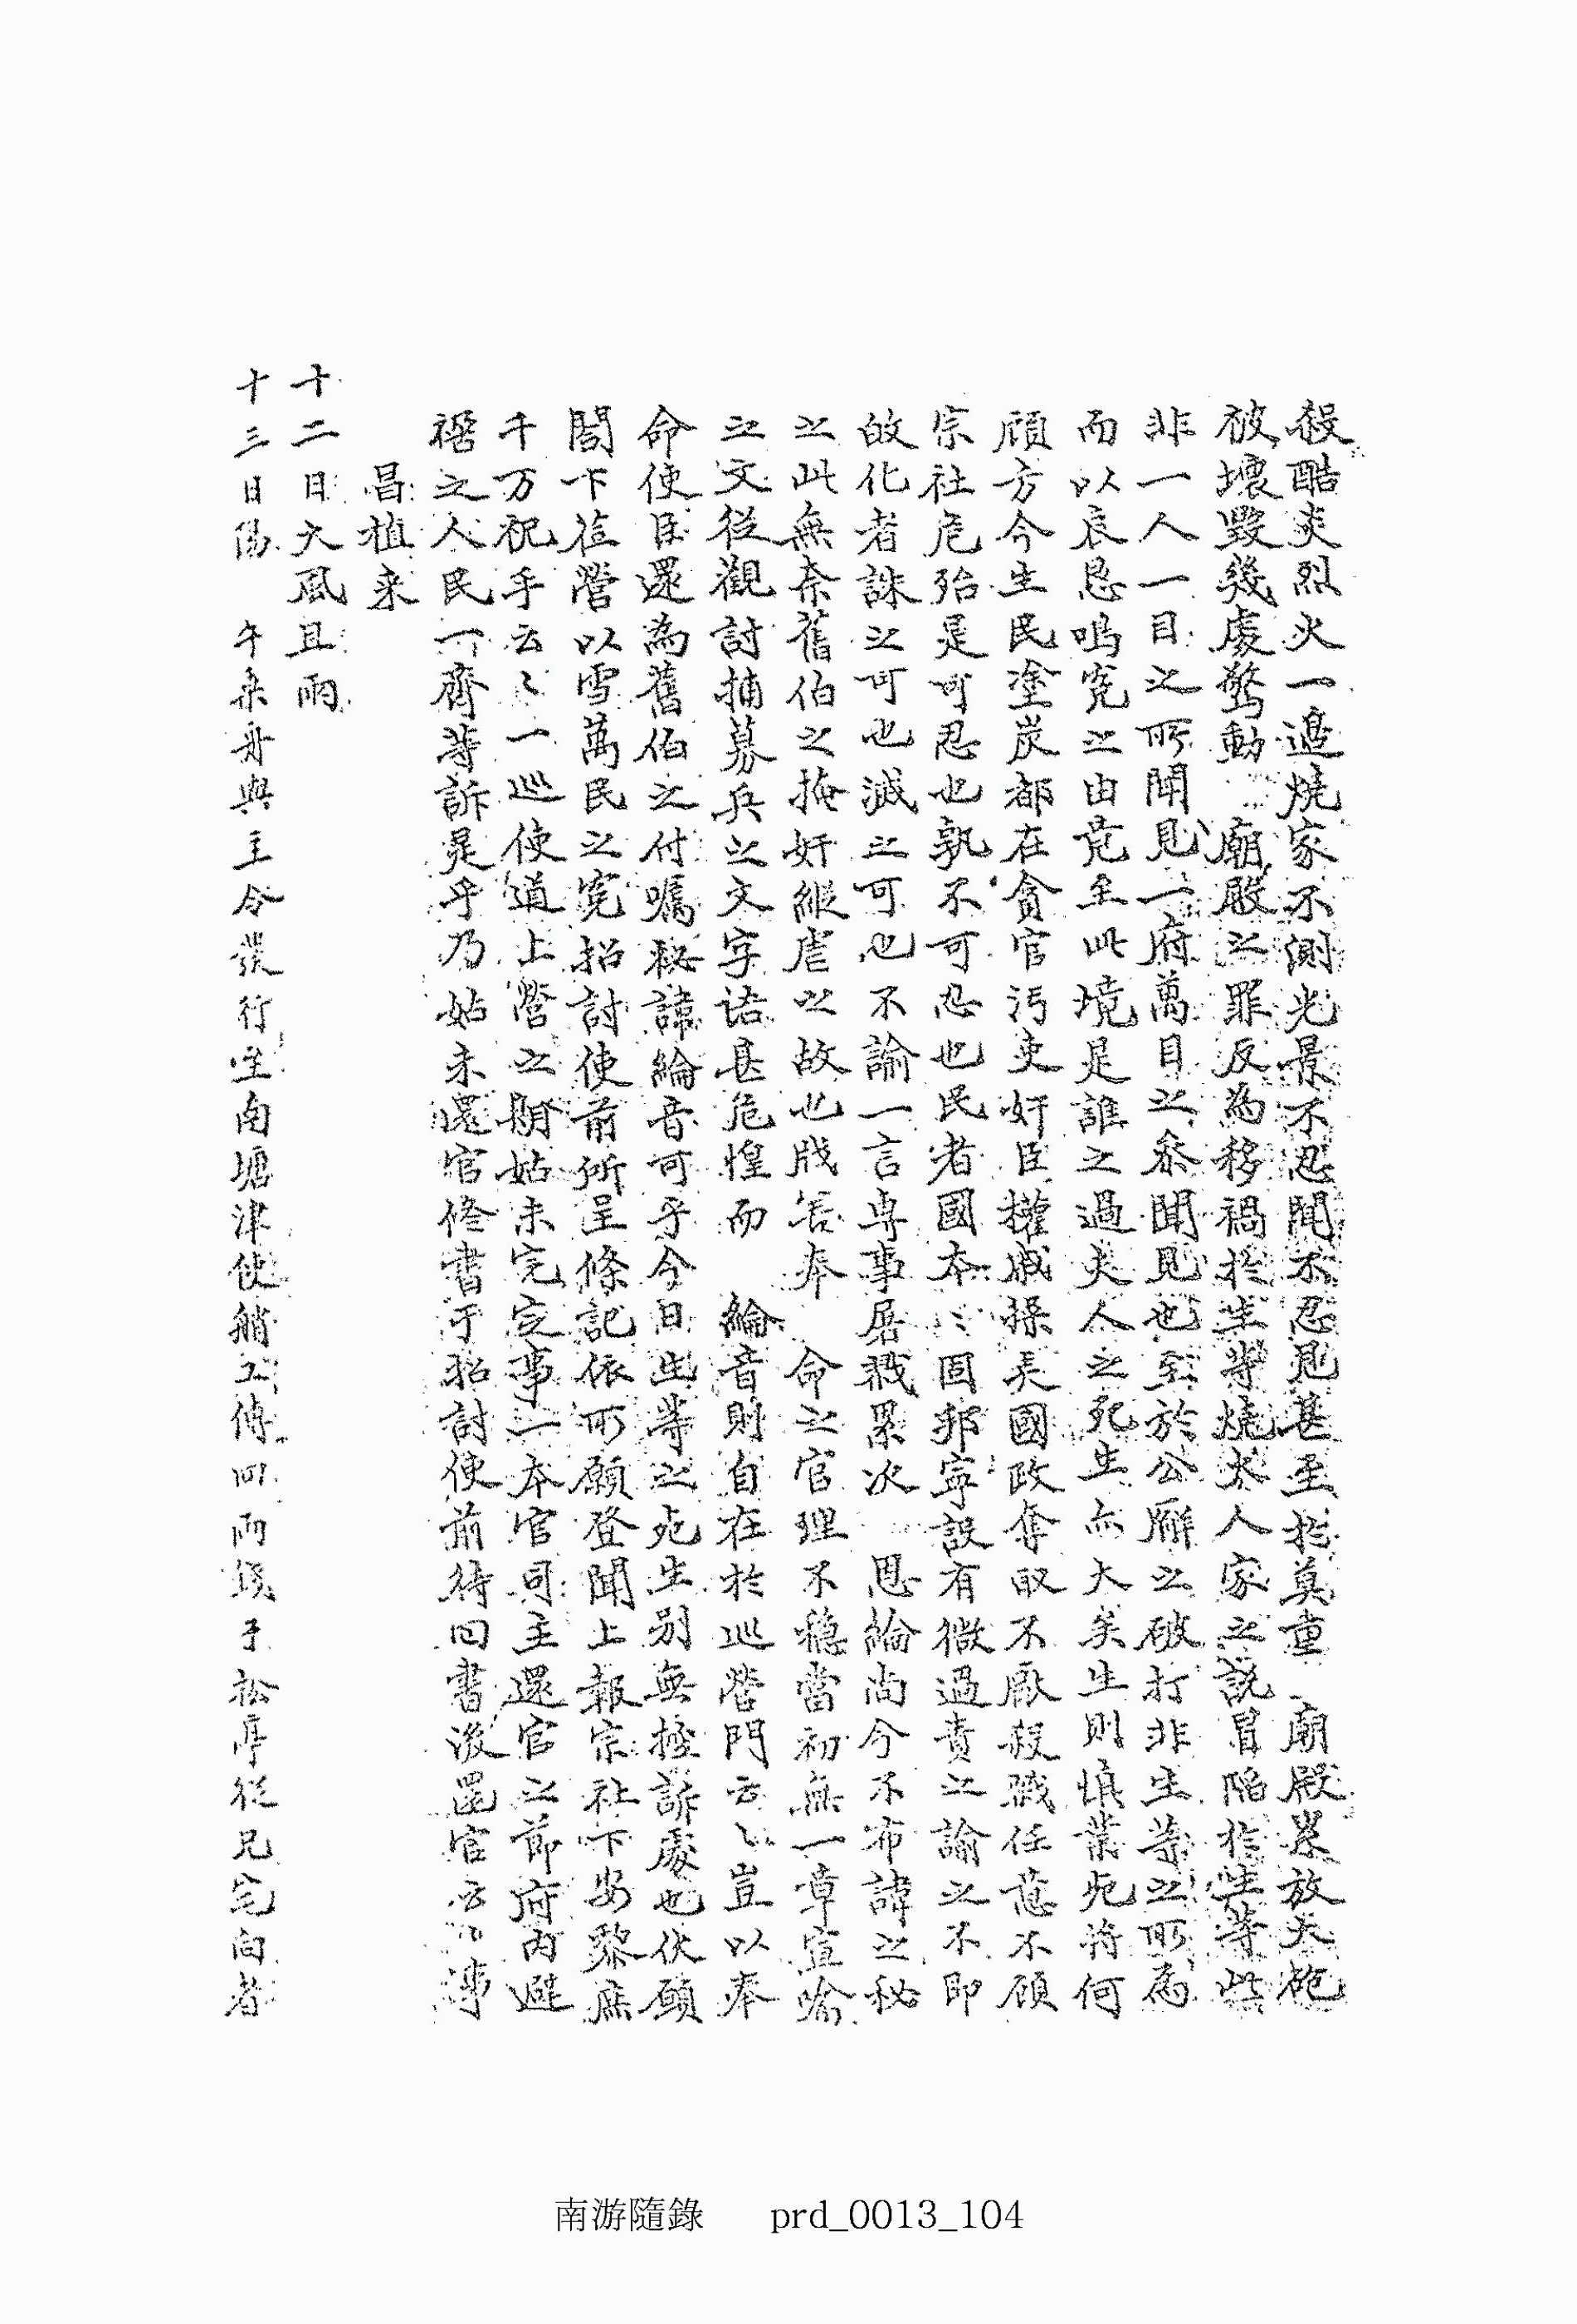 殺酷炎烈火一邊燒家不測光景不忍聞不忍見甚至於莫重 廟殿累放大砲
被壞毀幾處驚動 廟殿之罪反爲移禍於生等燒火人家之說冒陷於生等此
非一人一目之所聞見一府萬目之叅聞見也至於公廨之破打非生等之所爲
而以哀恳鳴寃之由竟至此境是誰之過夫人之死生亦大矣生則慎業死將何
顧方今生民塗炭都在貪官汚吏奸臣權戚操弄國政奪取不厭殺戮任意不顧
宗社危殆是可忍也孰不可忍也民者國本〻固邦寧設有微過責之諭之不即
改化者誅之可也滅之可也不諭一言專事屠戮累次 恩綸尚今不布諱之秘
之此無奈舊伯之掩奸縱虐以故也 奉 命之官理不穩當初無一章宣喩
之文從觀討捕募兵之文字語甚危惶而 綸音則自在於巡營門云〻豈以奉
命使臣還爲舊伯之付囑秘諱綸音可乎今日生等之死生別無控訴處也伏願
閤下莅營以雪萬民之寃招討使前所呈條記依所願登聞上報宗社下安黎庶
千万祝手云〻一巡使道上營之期姑未完定事一本官司主還官之節府內避
裾之人民一齊等訴是乎乃姑未還官修書于招討使前待回書後還官云〻事
昌植来
十二日大風且雨
十三日陽 午乘舟與主令發行至南塘津使艄工傳 雨 于松亭從兄宅向者